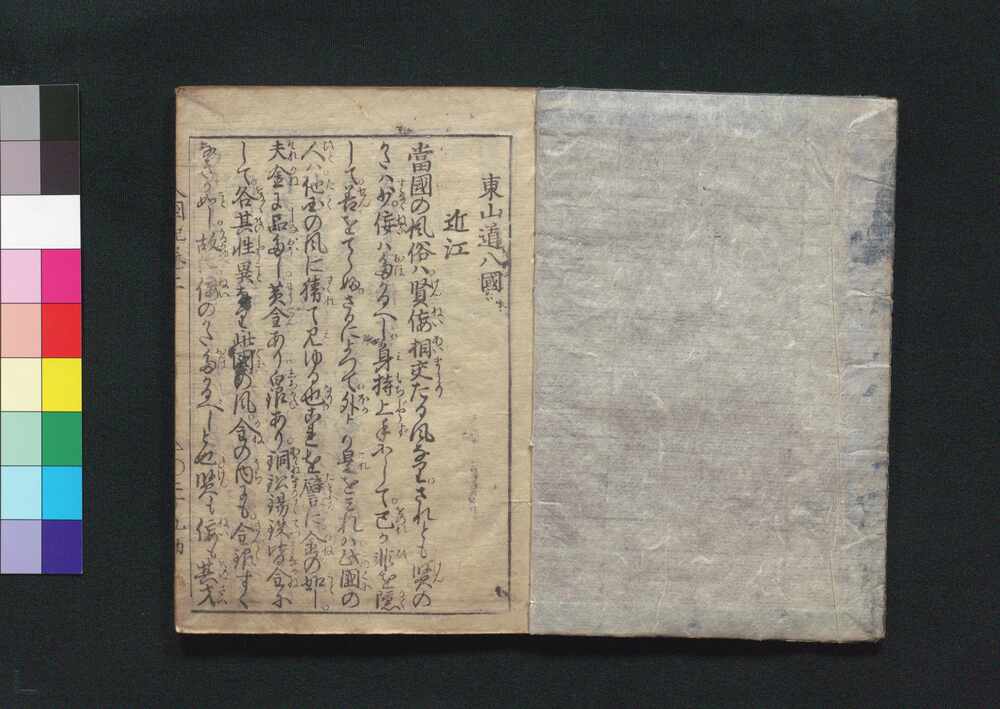 東山道八國
近江
當國の風俗ハ賢佞相交たる風なりされとも賢の
かたハ少佞ハ多かるへし身持上手にして己か非を隠
して善をてらふさるによつて外より是をみれハ此國の
人ハ他国の風に猜て見ゆる也これを譬に金の如し
夫金に品多し黄金あり白銀あり銅鉛錫鉄皆金に
して各其性異なり此國の風金の内にも金銀すく
なきかことし故に佞のかた多かるへしと也賢も佞も其才